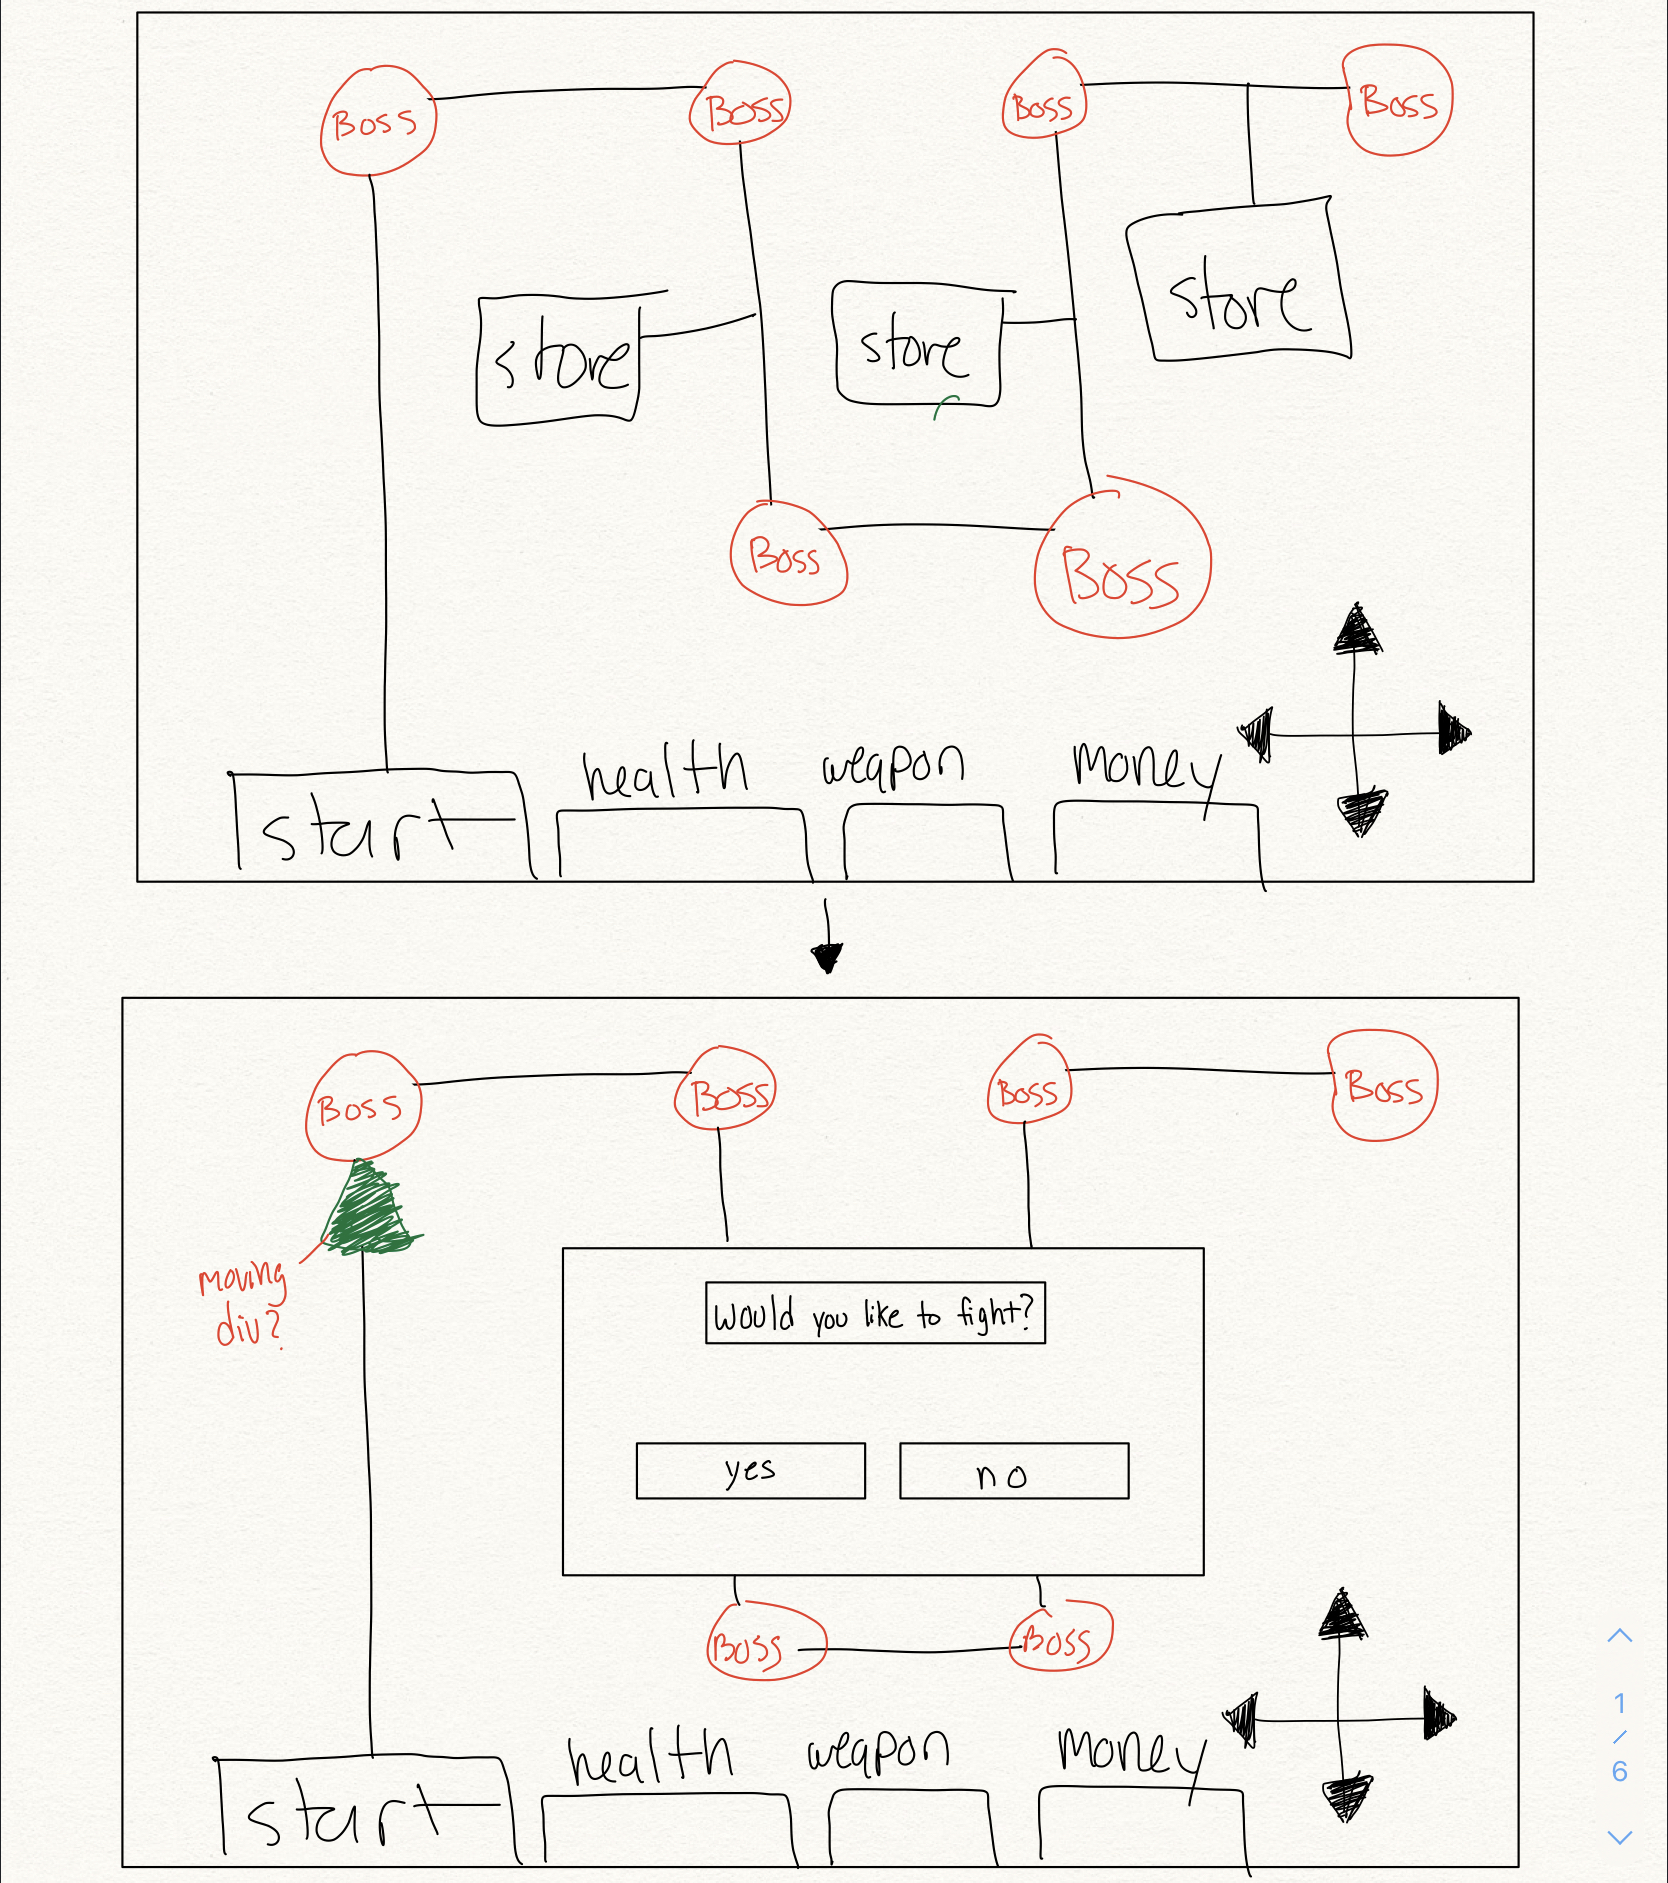 Boss
Boss
Boss
Boss
store
store
store
Boss
Boss
health
weapon
money
start
Boss
Boss
Boss
Boss
moving
div?
Would you like to fight?
yes
no
Boss
Boss
health
weapon
money
start
1
/
6